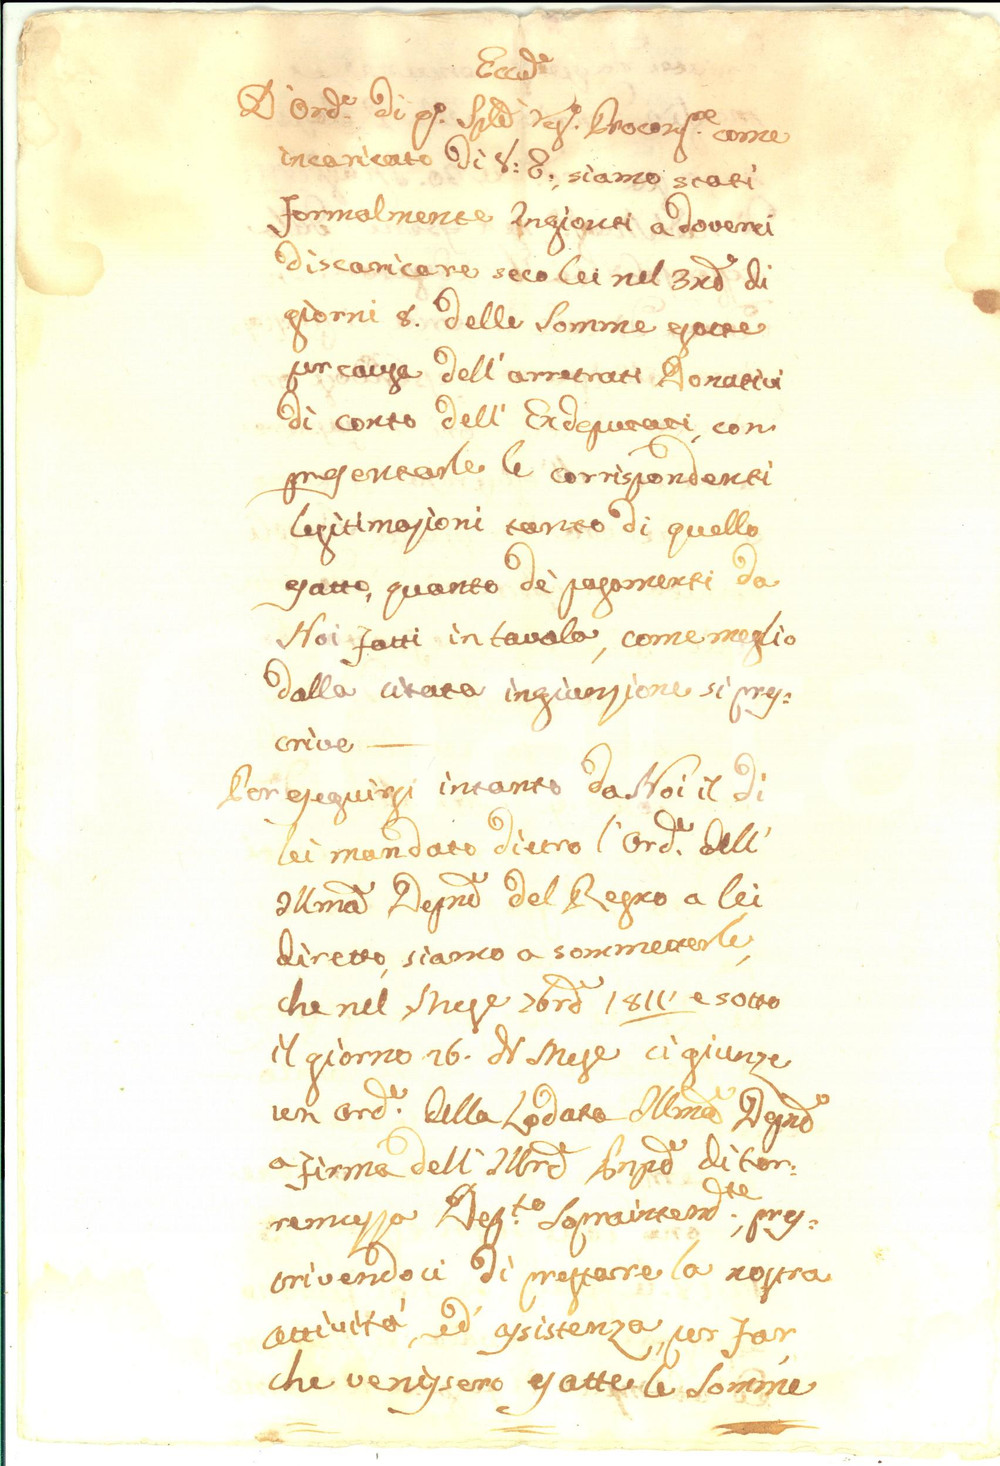 D'Ord.e di Procons.le come
incaricato di V: E:, siamo stati
formalmente Ingionti a doverci
discaricare seco lei nel di
giorni 8. delle Somme esatte
per causa dell'arretrati Donativi
di conto dell'Exdeputati, con
presentarle le corrispondenti
legitimasioni tanto di quello
esatto, quanto de pagamenti da
Noi fatti in tavola, come meglio
dalla citata ingiunsione si pres=
crive —
Per eseguirsi intanto da Noi il di
lei mandato dietro l'Ord.e dell'
Illma Depne del Regno a lei
diretto, siamo a sommetterle,
che nel Mese 1811 e sotto
il giorno 26. di Mese ci giunse
un Ord.e della Lodata Illma Depne
a firma dell' di Tor=
remuzza Dep.to Sopraintend.te, pres=
crivendoci di prestare la nostra
attività, ed' assistenza, per far,
che venissero esatte le Somme